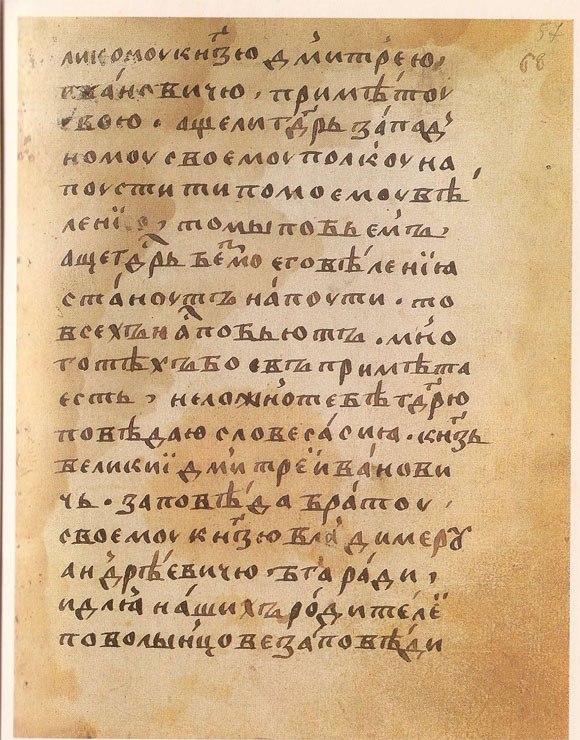 54
68
ликомоу кн҃зю дмитрею
ивановичю, примѣтоу
свою. аще ли гд҃рь запад
номоу своемоу полкоу на
поустити ти по моемоу вѣ
лению, то мы побьемъ,
аще гд҃рь бе моего вѣления
станоутъ на поути. то
всехъ на побьютъ. мно
го тѣхъ боевъ примѣта
есть, неложно тебѣ гд҃рю
повѣдаю словеса сия. кн҃зь
великиї дмитреї иванови
чь. заповѣда братоу
своемоу кн҃зю владимеру
андрѣевичю. бг҃а ради,
и для нашихъ родителеї
по волынцове заповѣди